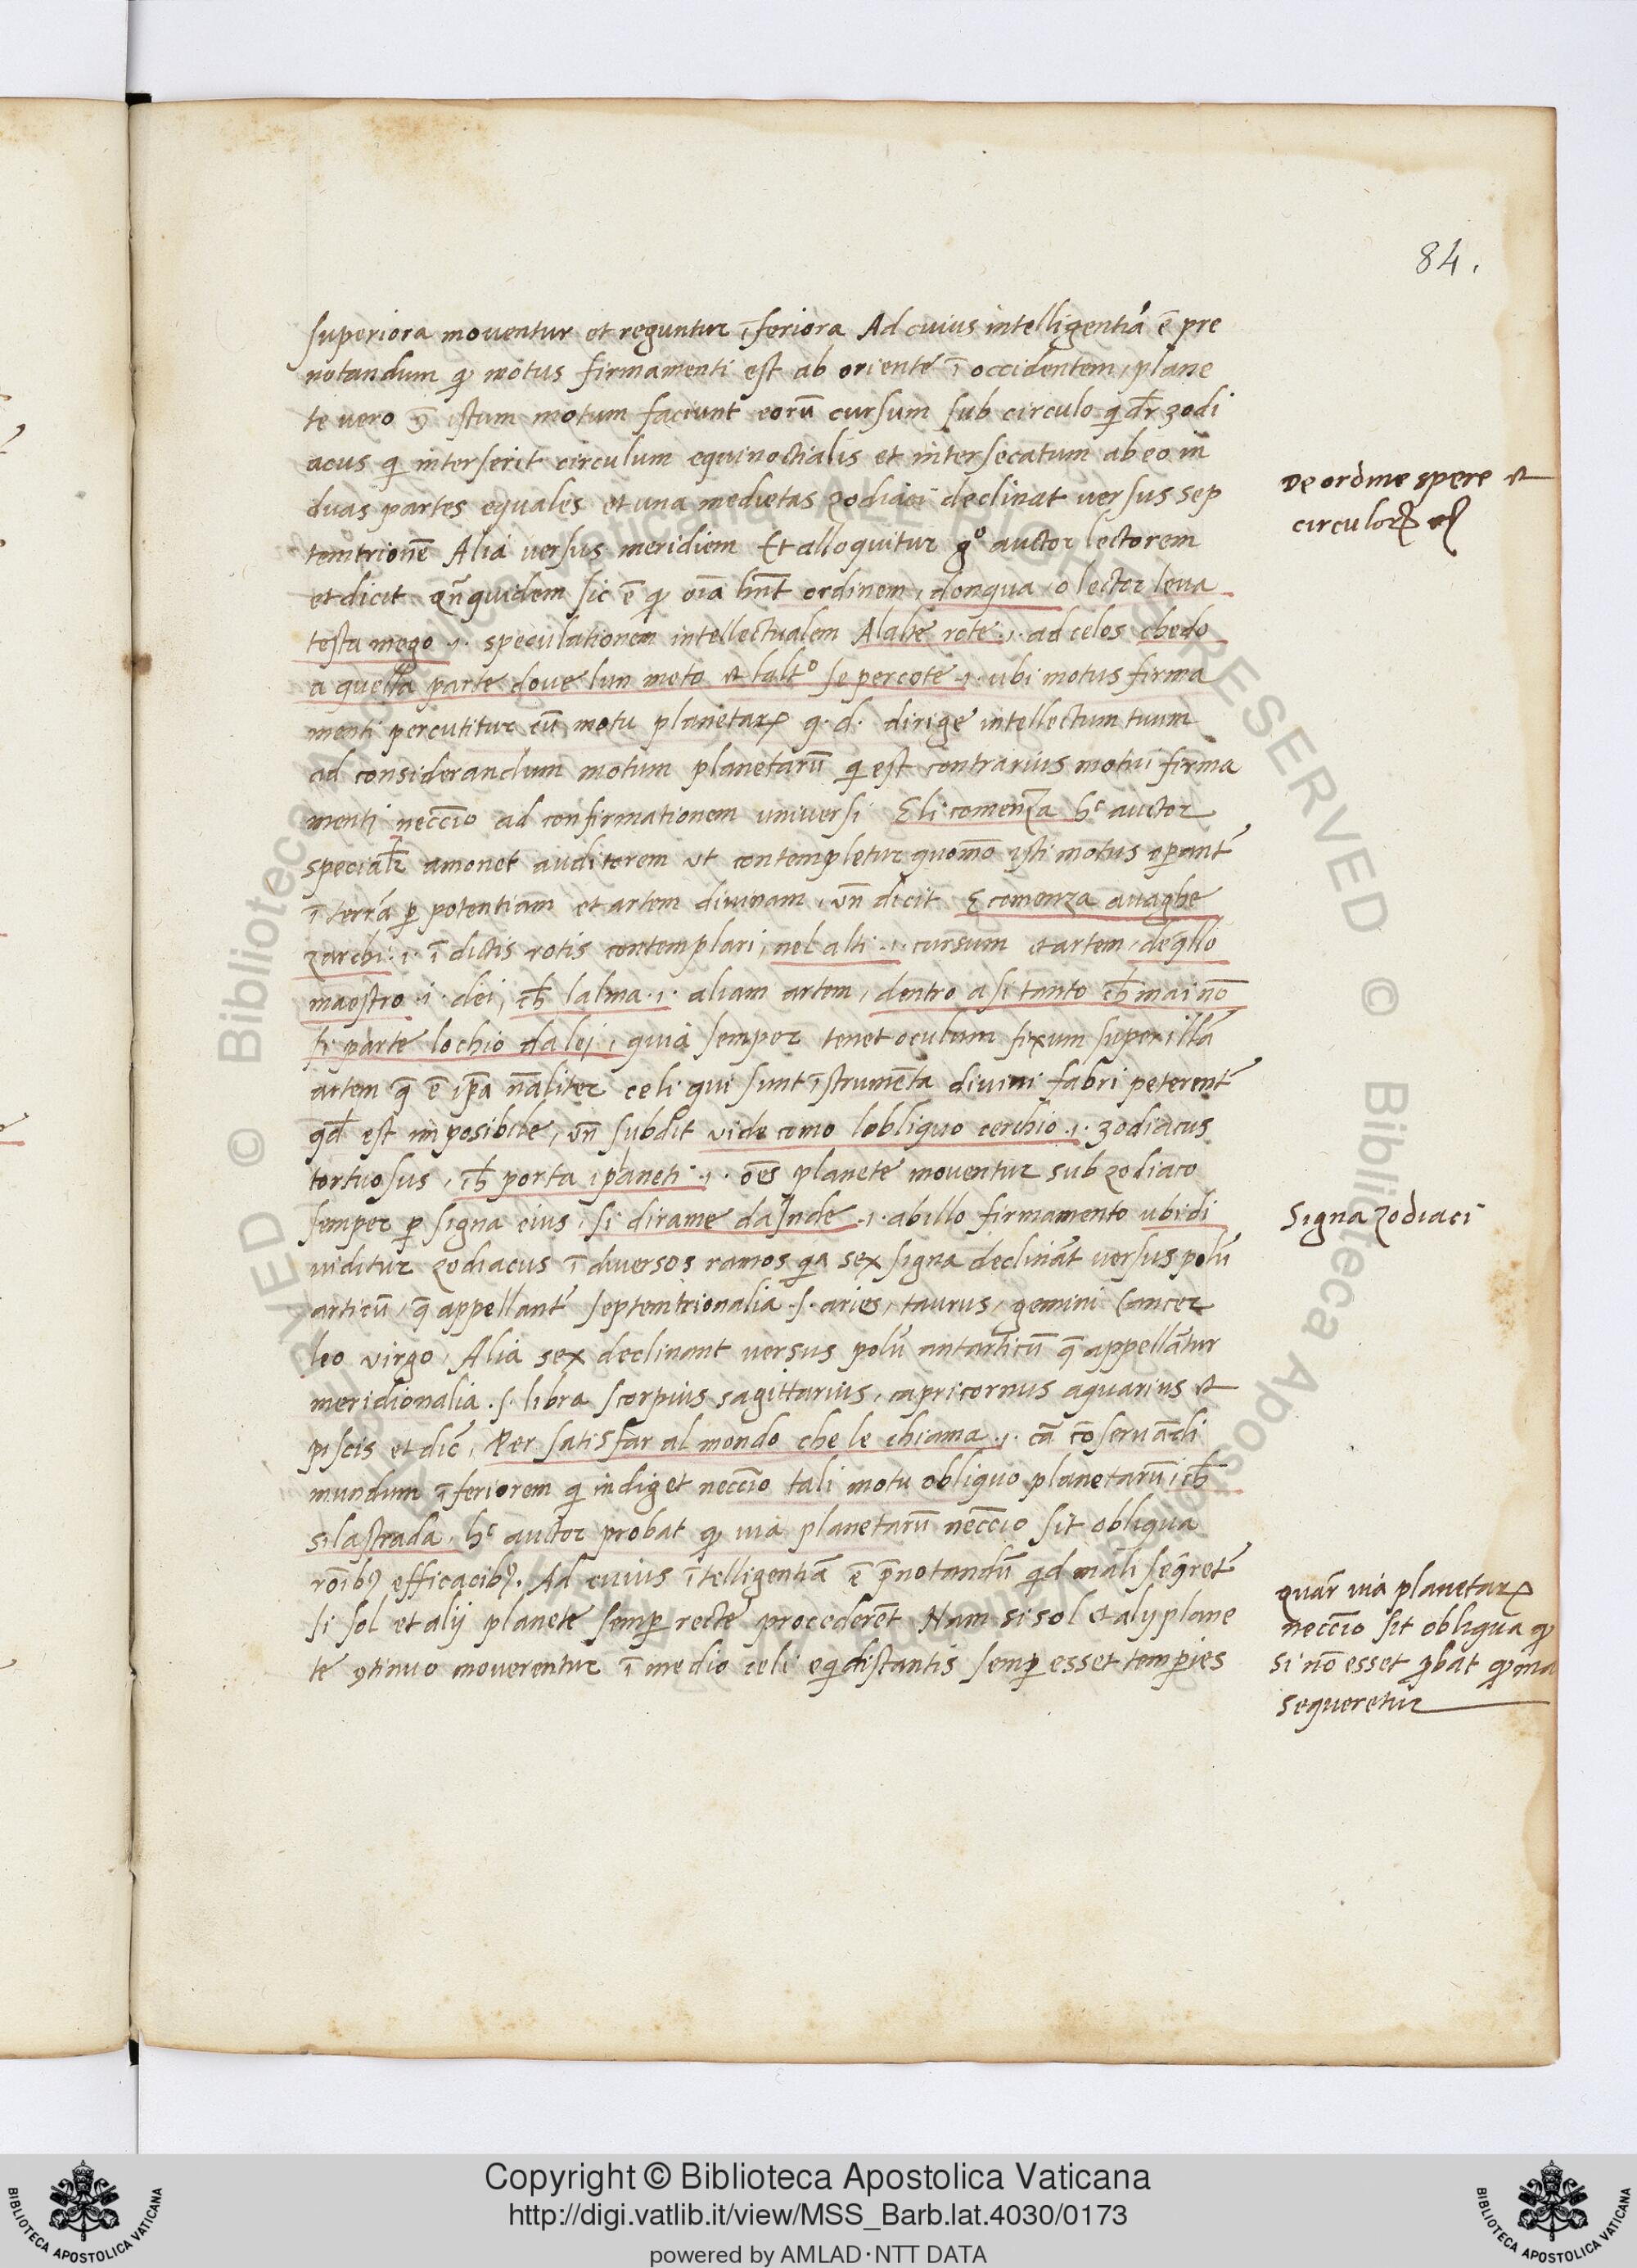 84.
superiora moventur et reguntur īferiora Ad cuius intelligentiā ē pre
notandum ꝙ motus firmamenti est ab oriente ī occidentem, plane
te vero ꝯ̄ istum motum faciunt eorū cursum sub circulo qi dr̄ zodi
acus qi interserit circulum equinoctialis et intersecatum ab eo in
duas partes equales et una medietas zodiaci declinat versus sep
temtrionē Alia versus meridiem Et alloquitur gº auctor lectorem
et dicit qn̄quidem sic ē ꝙ oīa hn̄t ordinem, donqua, o lector leua
testa mego .i. speculationem intellectualem Alalte rote .i. ad celos chedo
a quella parte doue lun moto et laltº se percote .i. ubi motus firma
menti percutitur cū motu planetaꝝ q. d. dirige intellectum tuum
ad considerandum motum planetarū qi est contrarius motui firma
menti neccīo ad confirmationem universi E li comenza hᶜ auctor
specialr̄ amonet auditorem ut contempletur quomō isti motus opant̄
ī terra ꝑ potentiam et artem divinam, un̄ dicit E comenza avaghe
zarchi .i. ī dictis rotis contemplari, nel alti .i. cursum et artem, de qllo
maestro .i. dei, ch̄ lalma .i. aliam artem, dentro a si tanto ch̄ mai nō
fi parte lochio da lei, quia semper tenet oculum fixum super illā
artem q̄ ē ip̄a nāliter celi qui sunt īstrumēta divini fabri peterent̄
qd̄ est imposibile, un̄ subdit vide como lobliquo cerchio .i. zodiacus
tortuosus, ch̄ porta i planeti .i. oēs planete moventur sub zodiaco
semper ꝑ signa eius, si dirame da Inde .i. ab illo firmamento ubi di
viditur zodiacus ī diversos ramos qa sex signa declināt versus polū
articū, q̄ appellant̄ septemtrionalia .s. aries, taurus, gemini Cancer
leo virgo, Alia sex declinant versus polū antarticū q̄ appellātur
meridionalia .s. libra scorpius sagittarius, capricornus aquarius et
piscis et dic̄, Per satisfar al mondo che le chiama .i. cā cōservādi
mundum īferiorem qi indiget neccīo tali motu obliquo planetarū, ch̄
si la strada, hᶜ auctor probat ꝙ via planetarū neccīo sit obliqua
rōibꝰ efficacibꝰ. Ad cuius ītelligentiā ē p̄notandū qid mali seqret̄
si sol et alij planete semꝑ recte procederēt Nam si sol et alij plane
te ꝯtinuo moverentur ī medio celi eqidistantis semꝑ esset temꝑies
De ordine spere et
circuloꝝ
Signa zodiaci
quar̄ via planetaꝝ
neccīo sit obliqua ꝙ
si nō esset ꝓbat ꝙ ma
sequeretur
Copyright © Biblioteca Apostolica Vaticana
http://digi.vatlib.it/view/MSS_Barb.lat.4030/0173
powered by AMLAD·NTT DATA
BIBLIOTECA APOSTOLICA VATICANA
BIBLIOTECA APOSTOLICA VATICANA